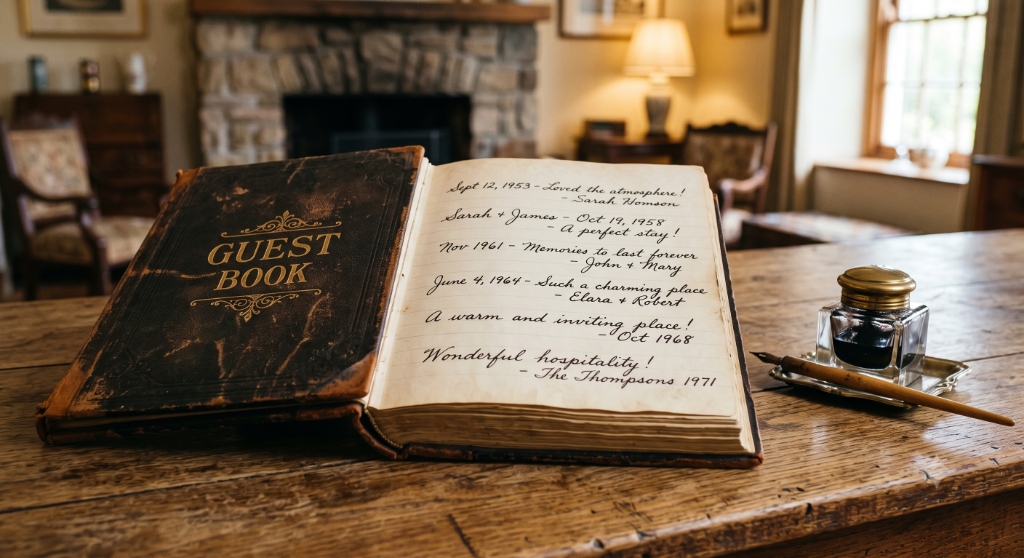 GUEST
BOOK
Sept 12, 1953 - Loved the atmosphere!
- Sarah Homson
Sarah + James - Oct 19, 1958
- A perfect stay!
Nov 1961 - Memories to last forever
- John + Mary
June 4, 1964 - Such a charming place
- Elara + Robert
A warm and inviting place!
- Oct 1968
Wonderful hospitality!
- The Thompsons 1971